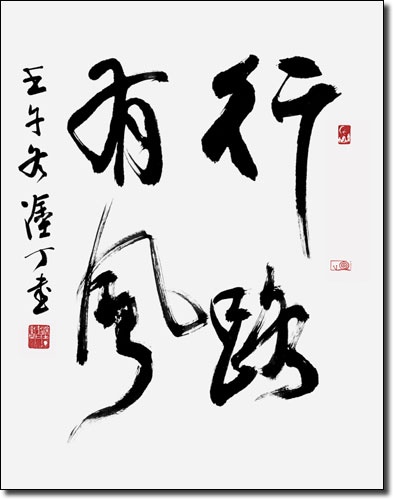 行路
有風
壬午冬 丁書